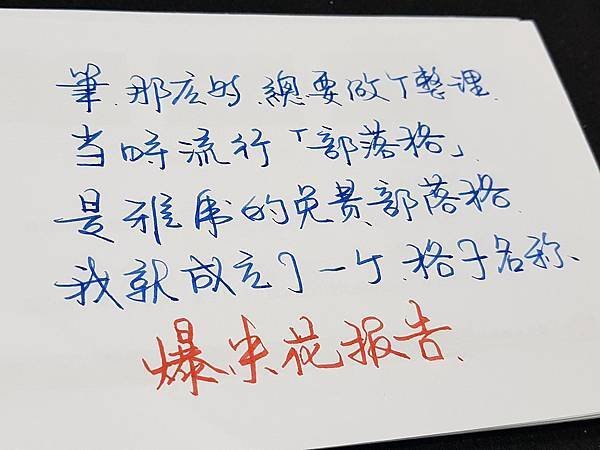 筆.那底時.總要做个整理.
当時流行「部落格」
是雅虎的免費.部落格.
我就成立了一个.格子名称、
爆米花报告.